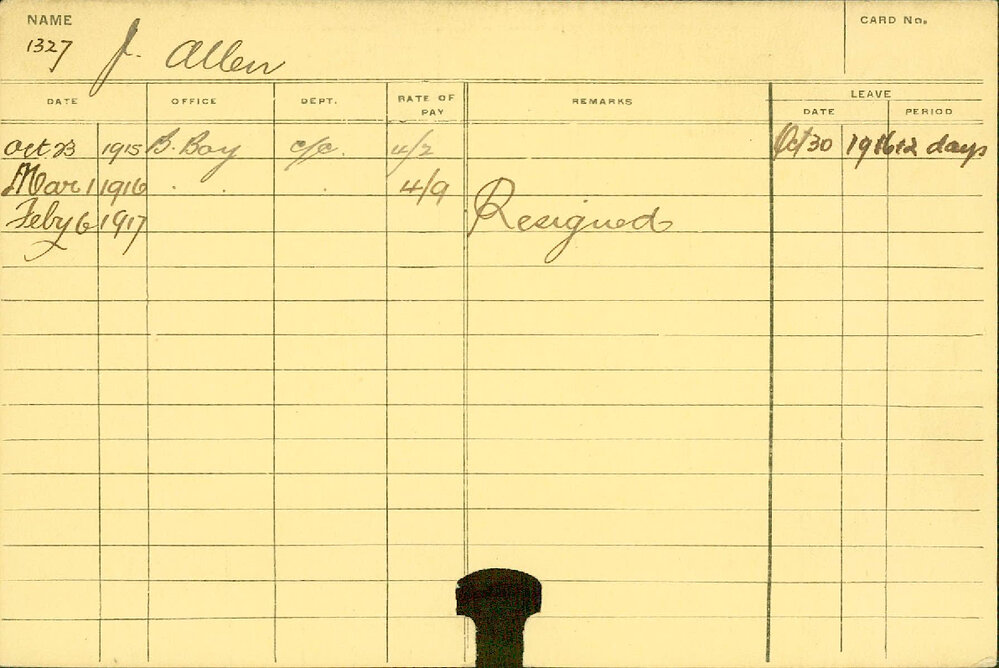 NAME
CARD No.
1327 J. Allen
DATE OFFICE DEPT. RATE OF PAY REMARKS LEAVE
DATE PERIOD
Oct 23 1915 B. Boy c/c. 4/2 Oct 30 1916 12 days
Mar 1 1916 . . . 4/9
Feby 6 1917 Resigned